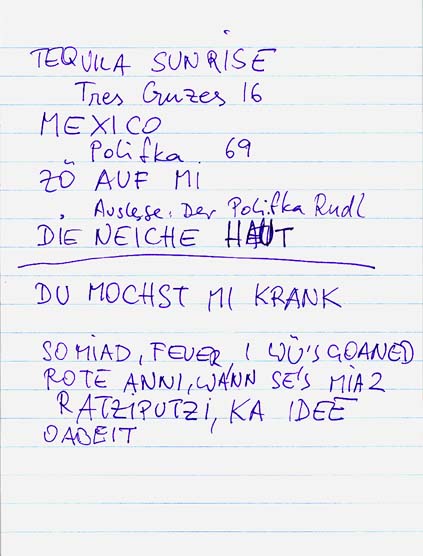 TEQUILA SUNRISE
Tres Cruzes 16
MEXICO
Polifka. 69
ZÖ AUF MI
Auslese: Der Polifka Rudl
DIE NEICHE HAUT
DU MOCHST MI KRANK
SO MIAD, FEUER, I WÜ'S GOANED
ROTE ANNI, WANN SE'S MIA 2
RATZIPUTZI, KA IDEE
OABEIT